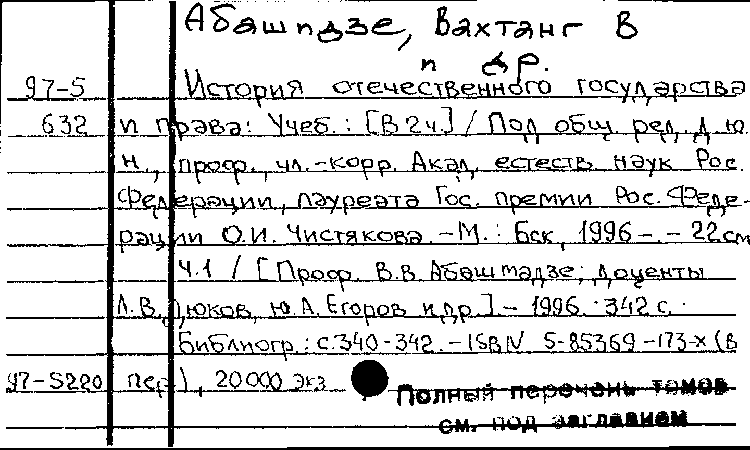 Абашидзе, Вахтанг В
и др.
97-5 История отечественного государства
632 и права: Учеб.: [В 2ч.] / Под общ. ред. д. ю.
н., проф., чл.-корр. Акад. естеств. наук Рос.
Федерации, лауреата Гос. премии Рос. Феде-
рации О.И. Чистякова. - М.: Бек, 1996 - . - 22 см
Ч.1 / [Проф. В.В. Абашидзе; доценты
Л.В. Дюков, Ю.А. Егоров и др.] - 1996. 342 с.
Библиогр.: с.340-342. - ISBN 5-85369-173-х (в
97-5220 пер.), 20000 экз
Полный перечень томов
см. под заглавием